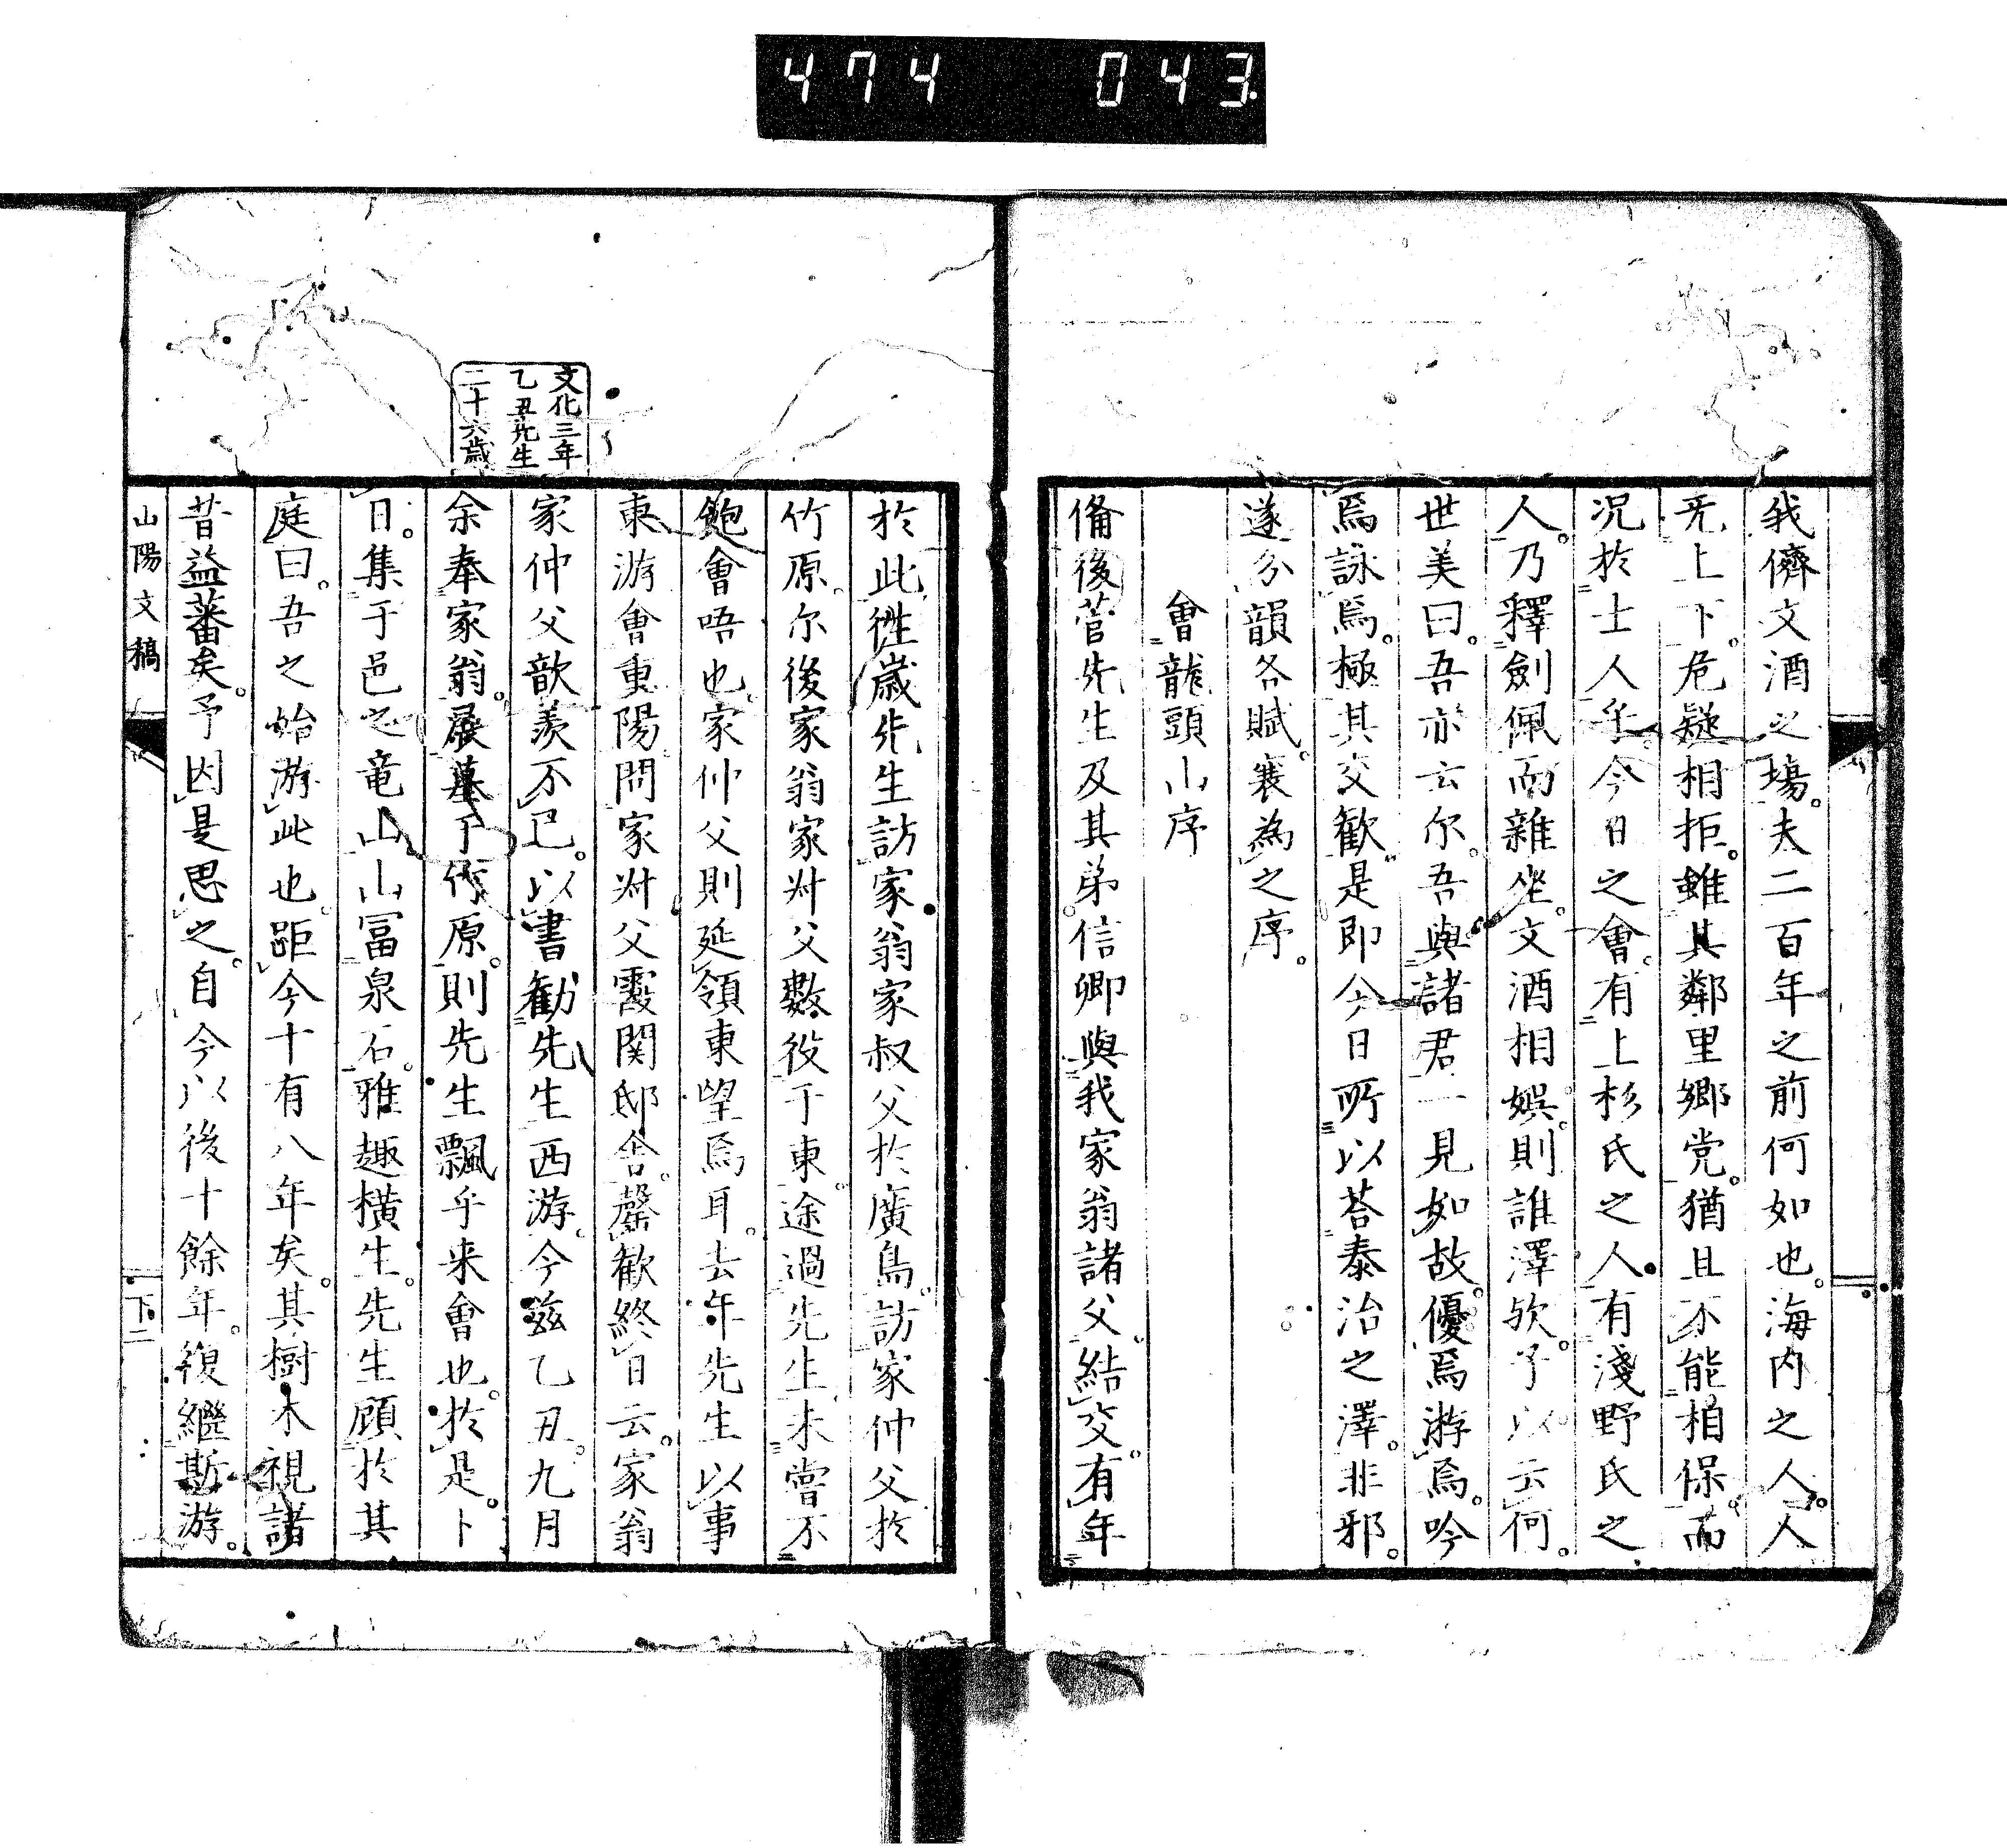 474 043
我儕文酒之場。夫二百年之前何如也。海内之人。人
旡上下。危疑相拒。雖其鄰里郷党。猶且不能相保。而
況於士人乎。今日之會。有上杉氏之人。有淺野氏之
人。乃釋劍佩而雜坐。文酒相娯。則誰澤欤。予以云何。
世美曰。吾亦云尓。吾與諸君一見如故。優焉游焉。吟
焉詠焉。極其交歡。是即今日所以荅泰治之澤。非邪。
遂分韻各賦。襄為之序。
會龍頭山序
備後菅先生及其弟信卿與我家翁諸父。結交。有年
於此。徃歳先生訪家翁家叔父於廣島。訪家仲父於
竹原。尓後家翁家叔父數役于東。途過先生。未嘗不
飽會唔也。家仲父則延領東望焉耳。去年先生以事
東游會東陽。問家叔父霞関邸舎。罄歓終日云。家翁
家仲父歆羨不已。以書勧先生西游。今玆乙丑。九月
余奉家翁。展墓于竹原。則先生飄乎来會也。於是。卜
日。集于邑之竜山。山冨泉石。雅趣横生。先生顧於其
庭曰。吾之始游此也。距今十有八年矣。其樹木視諸
昔益蕃矣。予因是思之。自今以後十餘年。復繼斯游。
文化三年
乙丑先生
二十六歳
山陽文稿
下二